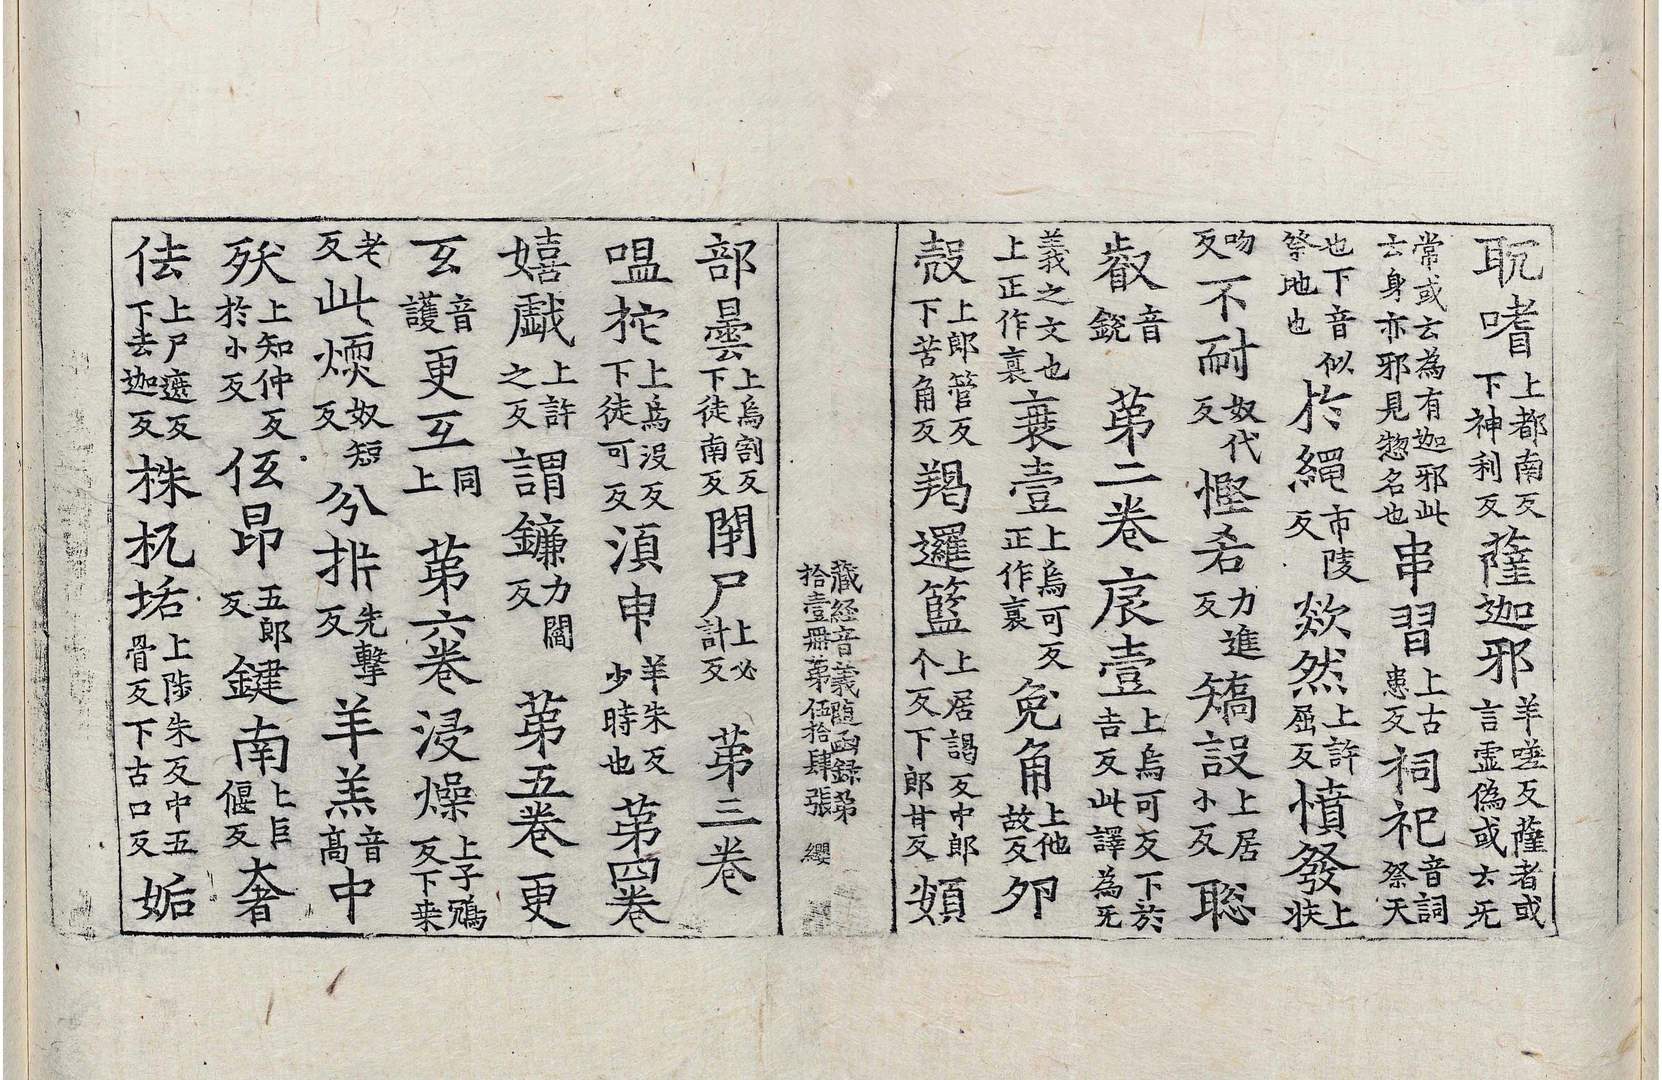 耽嗜上都南反下神利反薩迦邪羊嗟反薩者或言虛偽或云无
常或云為有迦邪此云身亦邪見惣名也串習上古患反祠祀音詞祭天
也下音似祭地也於繩市陵反欻然上許屈反憤發上扶
吻反不耐奴代反慳悋力進反矯設上居小反聡
叡音銳 苐二卷㐮壹上烏可反下於吉反此譯為无
義之文也上正作裛㐮壹上烏可反正作裛兔角上他故反夘
㲉上郎管反下苦角反羯邏籃上居謁反中郎个反下郎甘反頞
藏经音義随函録苐拾壹冊苐伍拾肆張 纓
部曇上烏割反下徒南反閇尸上必計反 苐三卷
嗢拕上烏没反下徒可反湏申羊朱反少時也 苐四卷
嬉戯上許之反謂鐮力閻反 苐五卷更
玄音護更互同上 苐六卷浸燥上子鴆反下桒
老反此煗奴短反分㭊先擊反羊羔音高中
殀上知仲反於小反伭昂五郎反鍵南上巨偃反奢
佉上尸遮反下去迦反株杌垢上陟朱反中五骨反下古口反姤